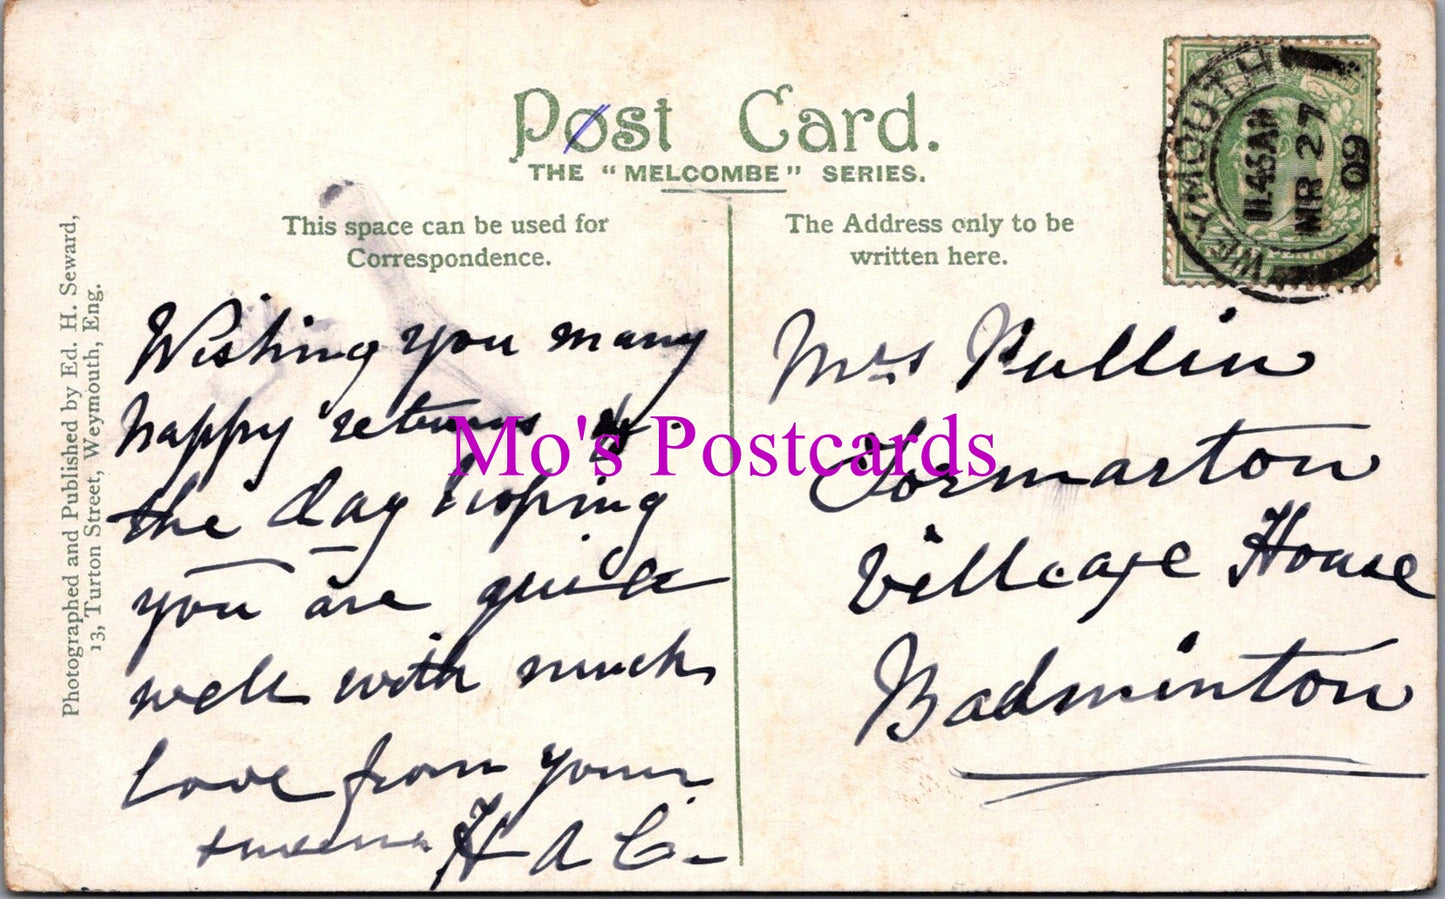 Post Card.
THE "MELCOMBE" SERIES.
This space can be used for
Correspondence.
The Address only to be
written here.
WEYMOUTH
11.45AM
MR 27
09
Photographed and Published by Ed. H. Seward,
13, Turton Street, Weymouth, Eng.
Wishing you many
happy returns of
the day hoping
you are quite
well with much
love from yours
H A C.
Mrs Pullin
Tormarton
Village House
Badminton
Mo's Postcards